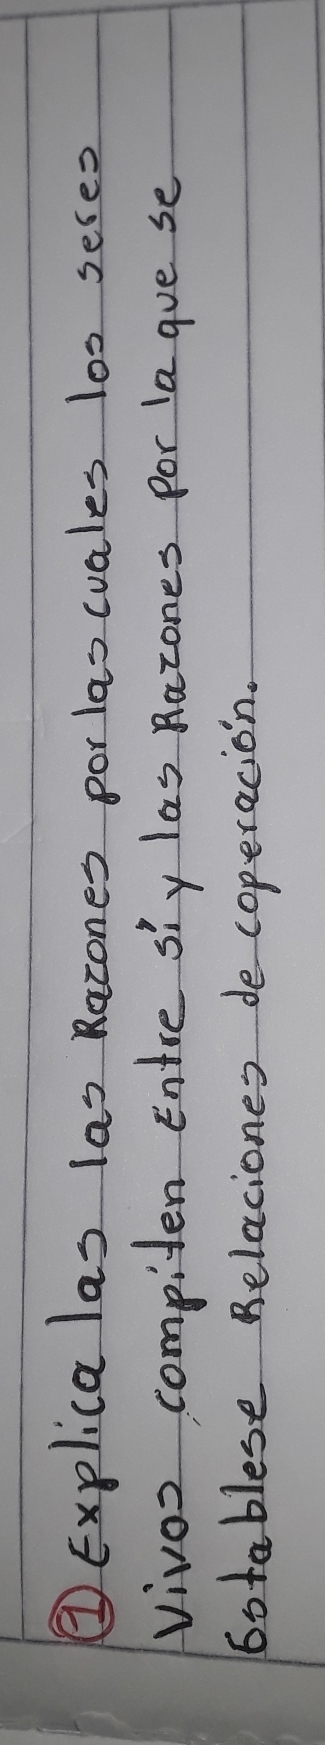 ① Explica las las Razones por las cuales los seres
Vivos compiten Entre sí y las Razones por la que se
Establese Relaciones de coperación.